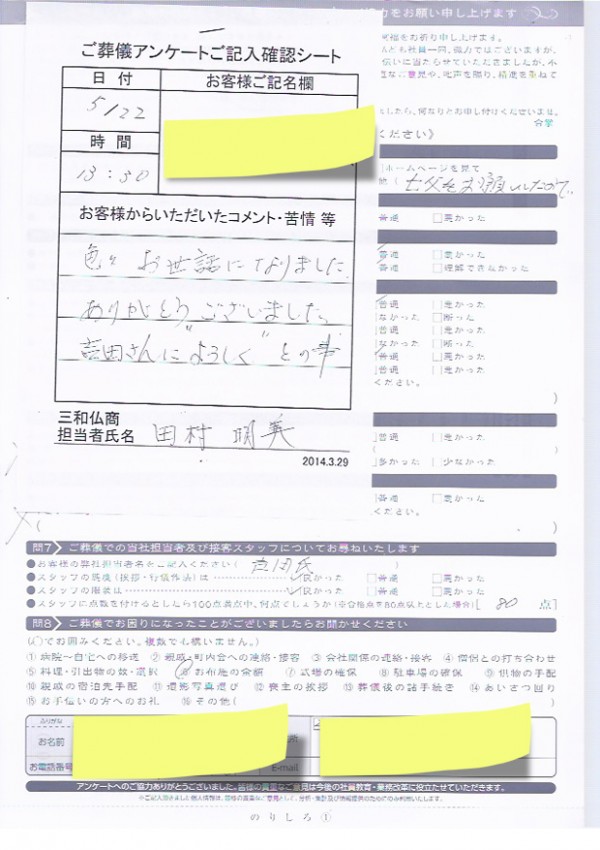 力をお願い申し上げます
ご葬儀アンケートご記入確認シート
日付
お客様ご記名欄
5/22
時間
13:30
お客様からいただいたコメント・苦情 等
色々 お世話になりました。
ありがとうございました。
吉田さんに"よろしく"との事
三和仏商
担当者氏名 田村 明英
2014.3.29
福をお祈り申し上げます。
合掌
ください》
ホームページを見て
亡父をお願いしたので。
普通 □悪かった
普通 □悪かった
普通 □理解できなかった
普通 □悪かった
なかった □断った
普通 □悪かった
なかった □断った
普通 □悪かった
普通 □悪かった
ください。
)
普通 □悪かった
多かった □少なかった
普通 □悪かった
( )
問7 ご葬儀での当社担当者及び接客スタッフについてお尋ねいたします
●お客様の弊社担当者名をご記入ください( 吉田氏 )
●スタッフの態度(挨拶・行儀作法)は 良かった □普通 □悪かった
●スタッフの服装は 良かった □普通 □悪かった
●スタッフに点数を付けるとしたら100点満点中、何点でしょうか(※合格点を80点以上とした場合)[ 80 点]
問8 ご葬儀でお困りになったことがございましたらお聞かせください
(○でお囲みください。複数でも構いません。)
①病院〜自宅への移送 ②親戚・町内会への連絡・接客 ③会社関係の連絡・接客 ④僧侶との打ち合わせ
⑤料理・引出物の数・選択 ⑥お布施の金額 ⑦式場の確保 ⑧駐車場の確保 ⑨供物の手配
⑩親戚の宿泊先手配 ⑪遺影写真選び ⑫喪主の挨拶 ⑬葬儀後の諸手続き ⑭あいさつ回り
⑮お手伝いの方へのお礼 ⑯その他( )
ふりがな
お名前
お電話番号
E-mail
アンケートへのご協力ありがとうございました。皆様の貴重なご意見は今後の社員教育・業務改革に役立たせていただきます。
※ご記入頂きました個人情報は、皆様の貴重なご意見として、分析・集計及び情報提供のためにのみ利用いたします。
のりしろ①